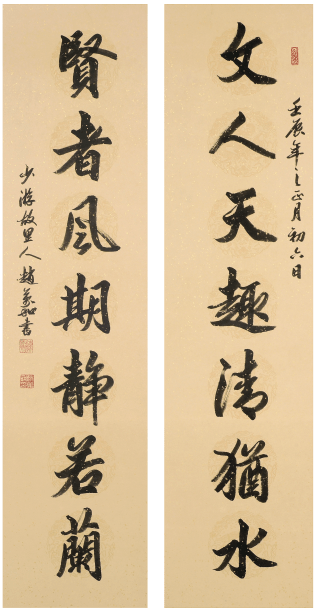 壬辰年之正月初六日
文人天趣清猶水
賢者風期静若蘭
少游故里人趙書